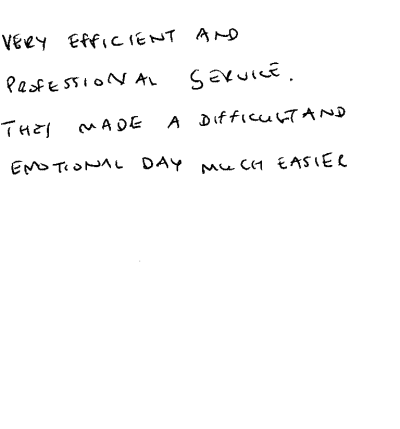 VERY EFFICIENT AND
PROFESSIONAL SERVICE.
THEY MADE A DIFFICULT AND
EMOTIONAL DAY MUCH EASIER